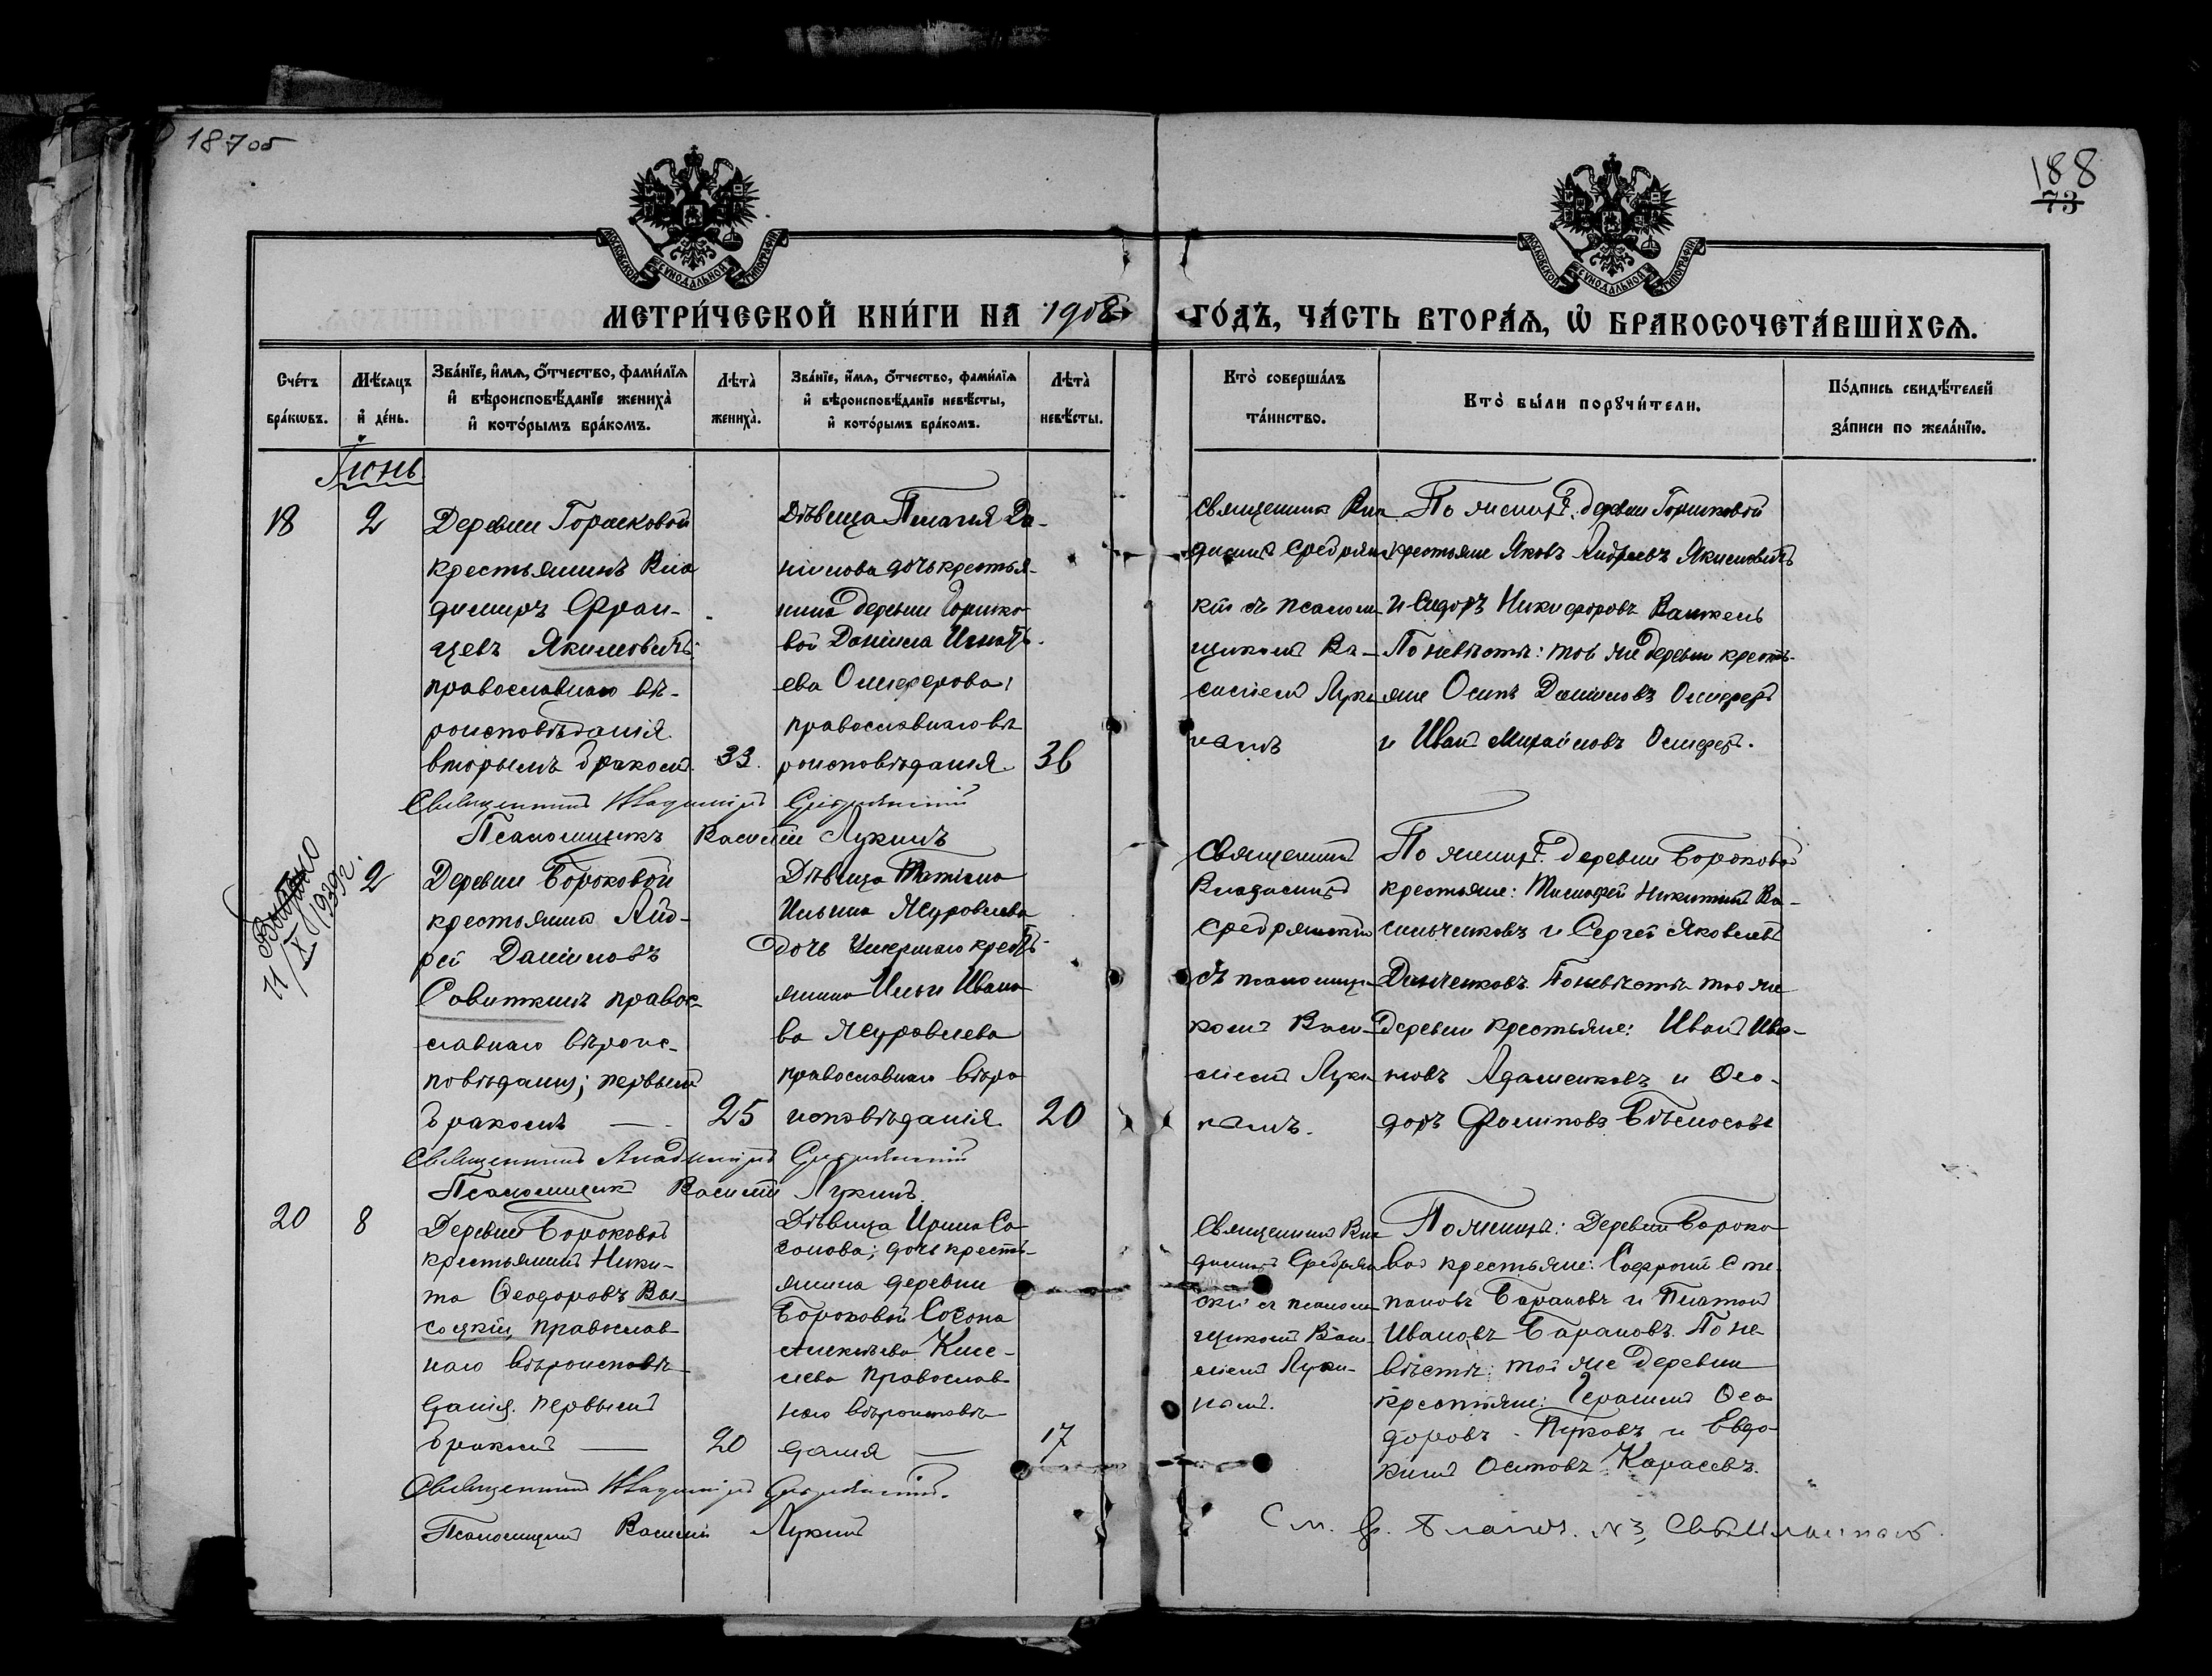 187об
188
73
МОСКОВСКОЙ СѴНОДАЛЬНОЙ ТИПОГРАФІИ
МОСКОВСКОЙ СѴНОДАЛЬНОЙ ТИПОГРАФІИ
МЕТРИ́ЧЕСКОЙ КНИ́ГИ НА 1908 ГО́ДЪ, ЧА́СТЬ ВТОРА́Ѧ, Ѡ҆ БРАКОСОЧЕТА́ВШИХСѦ.
Сче́тъ бра́кѡвъ.
Мѣ́сѧцъ и҆ де́нь.
Зва́нїе, и҆́мѧ, ѻ҆́тчество, фами́лїѧ и҆ вѣроисповѣ́данїе жениха̀ и҆ кото́рымъ бра́комъ.
Лѣта̀ жениха̀.
Зва́нїе, и҆́мѧ, ѻ҆́тчество, фами́лїѧ и҆ вѣроисповѣ́данїе невѣ́сты, и҆ кото́рымъ бра́комъ.
Лѣта̀ невѣ́сты.
Кто̀ соверша́лъ та́инство.
Кто̀ бы́ли порꙋчи́тели.
По́дпись свидѣ́телей за́писи по жела́нїю.
Іюнь
18
2
Деревни Горшковой
крестьянинъ Вла
димиръ Фран-
цевъ Якимовичъ;
православнаго вѣ-
роисповѣданія
вторымъ бракомъ.
33.
Дѣвица Пелагія Да-
ніилова дочь крестья-
нина деревни Горшко-
вой Даніила Игнать-
ева
православнаго вѣ
роисповѣданія.
36
Священникъ Вла
димиръ Средрянс
кій съ псаломщ
щикомъ Ва-
силіемъ Луки
нымъ
По жениху: деревни Горшковой
крестьяне Яковъ Андреевъ Якимовичъ
и Сидоръ Никифоровъ
По невѣстѣ: той же деревни кресть-
яне Осипъ Даниловъ
и Иванъ Михайловъ
Священникъ Владиміръ
Псаломщикъ Василій Лукинъ
Выдано
11/X 1939г.
2
Деревни Бороковой
крестьянинъ Анд-
рей Даниловъ
Совиткинъ правос-
славнаго вѣроис-
повѣданія; первымъ
бракомъ —
25
Дѣвица Татіана
Ильина Журавлева
дочь умершаго кресть-
янина Ильи Ивано
ва Журавлева
православнаго вѣро
исповѣданія.
20
Священникъ
Владимиръ
съ псаломщи
комъ Васи-
ліемъ Луки
нымъ.
По жениху: деревни Бороковой
крестьяне: Тимофей Никитинъ Ва-
сильченковъ и Сергей Яковлевъ
Данченковъ. По невѣстѣ той же
деревни крестьяне: Иванъ Ива-
новъ Адаменковъ и Ѳео-
доръ
Священникъ Владиміръ
Псаломщикъ Василій Лукинъ.
20
8
Деревни Бороковой
крестьянинъ Ники-
та Ѳеодоровъ Вы-
соцкій, православ-
наго вѣроисповѣ-
данія. первымъ
бракомъ —
20
Дѣвица Ирина Со-
зонова; дочь кресть-
янина деревни
Бороковой Созона
Алексѣева Кисе-
лева православ
наго вѣроисповѣ-
данія —
17
Священникъ Вла
димиръ
скій съ псаломщ
щикомъ Васи-
ліемъ Луки-
нымъ.
По жениху: Деревни Бороко
вой крестьяне: Софроній Сте
пановъ Барановъ и Платонъ
Ивановъ Барановъ. По не
вѣстѣ: той же деревни
крестьяне: Герасимъ Ѳео
доровъ Пуковъ и Евдо
кимъ Осиповъ Карасевъ.
Священникъ Владиміръ
Псаломщикъ Василій Лукинъ
См. №3,